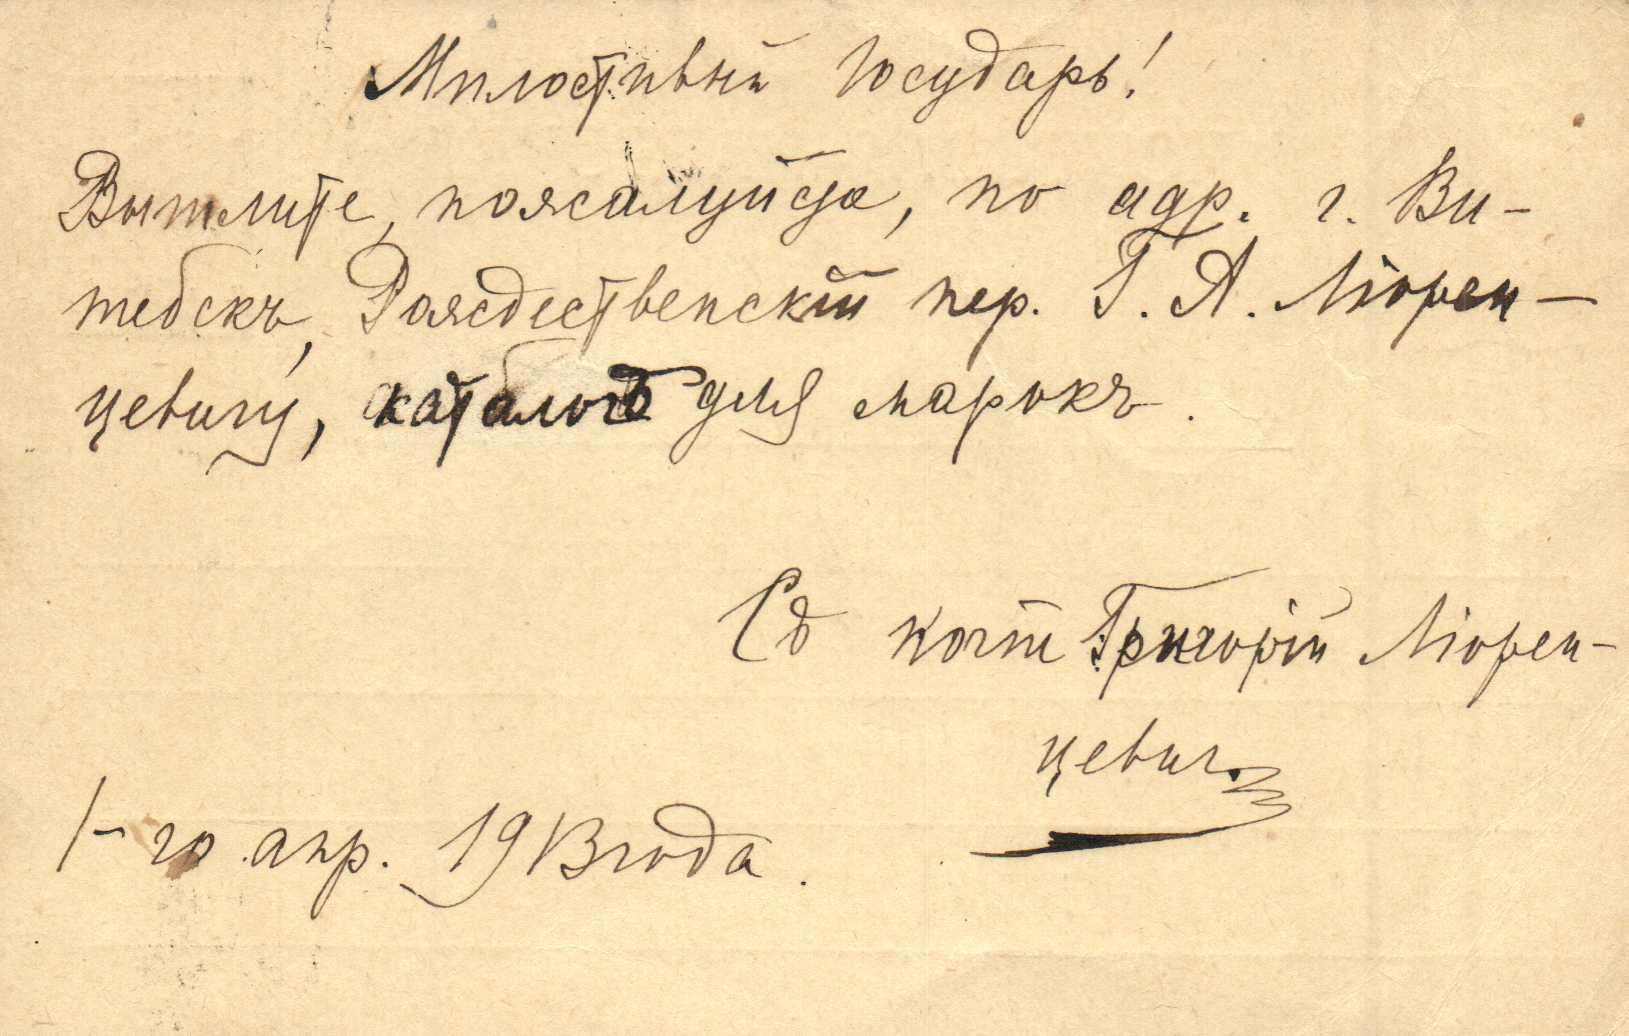 Милостивый Государь!
Вышлите, пожалуйста, по адр. г. Ви-
тебскъ, Рождественскій пер. Г. А. Люрен-
цевичу, каталогъ для марокъ.
Съ почт Григорій Люрен-
цевич.
1-го апр. 1913 года.